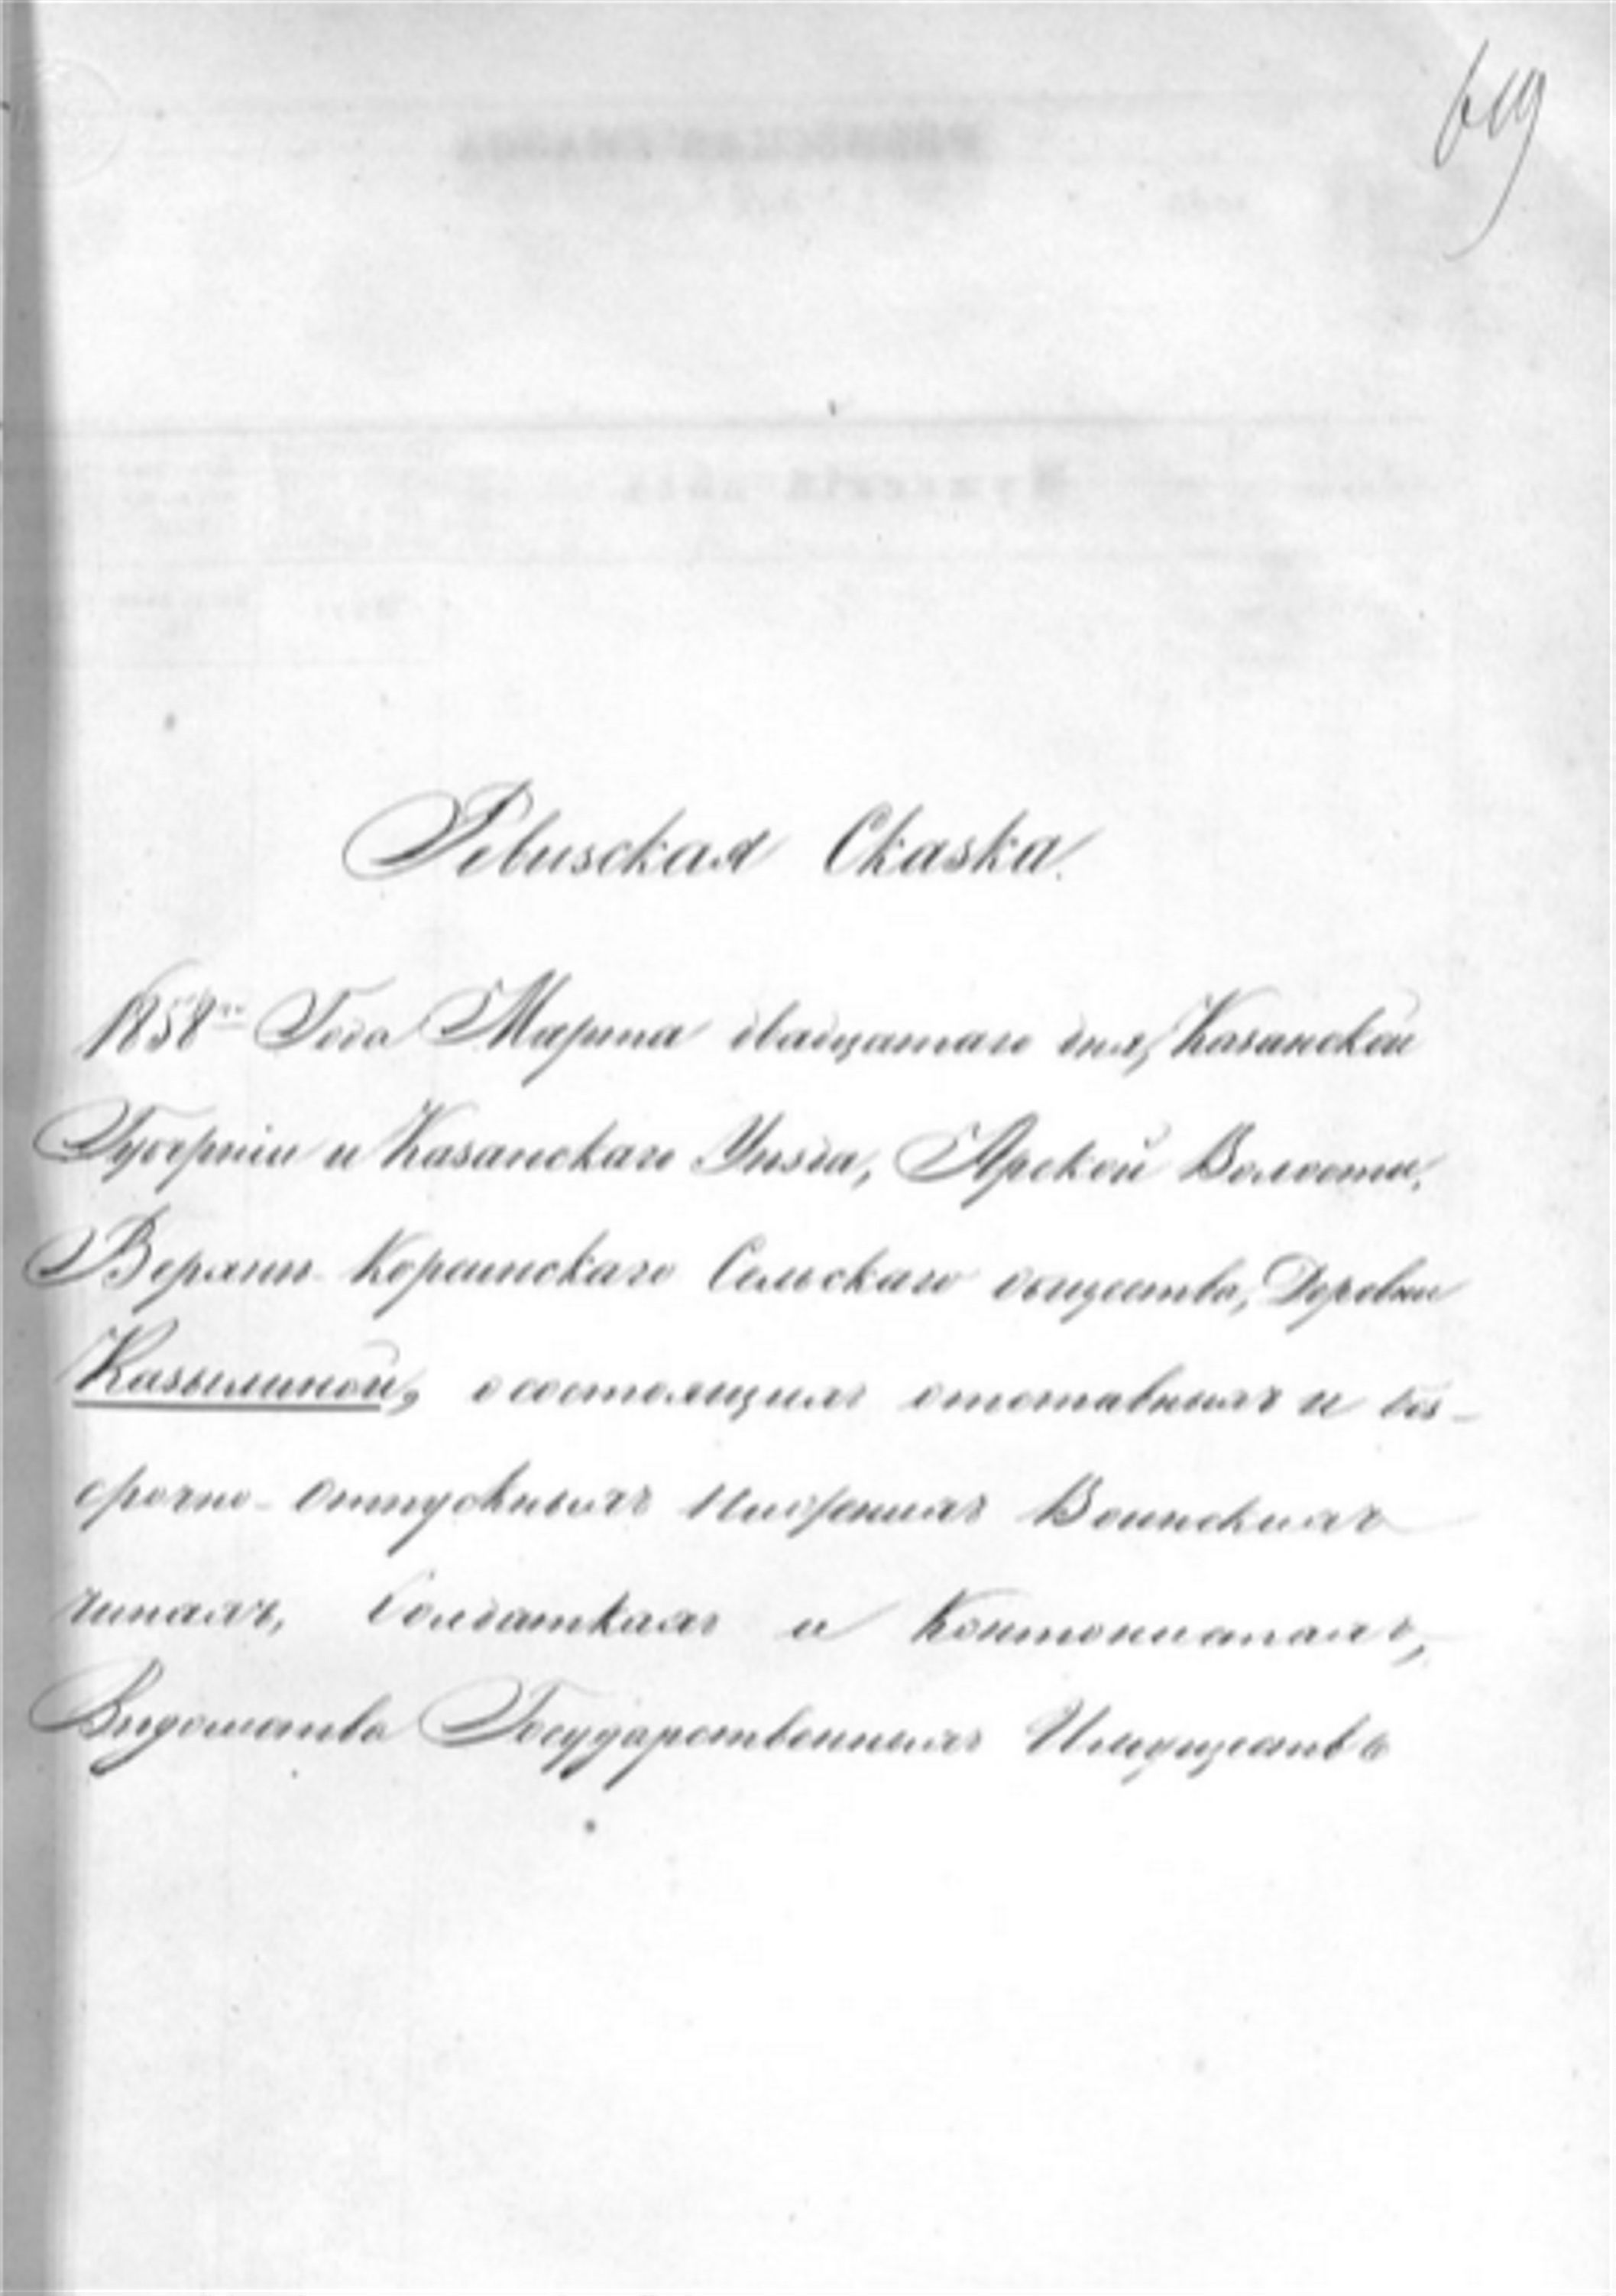 619
Ревизская Сказка.
1858го Года Марта двадцатаго дня, Казанской
Губерніи и Казанскаго Уѣзда, Арской Волости,
Верхни Корсинскаго Сельскаго общества, Деревни
Казылиной, о состоящихъ отставныхъ и без-
срочно-отпускныхъ Нижнихъ Воинскихъ
чинахъ, Солдаткахъ и Кантонистахъ,
Вѣдомства Государственныхъ Имуществъ